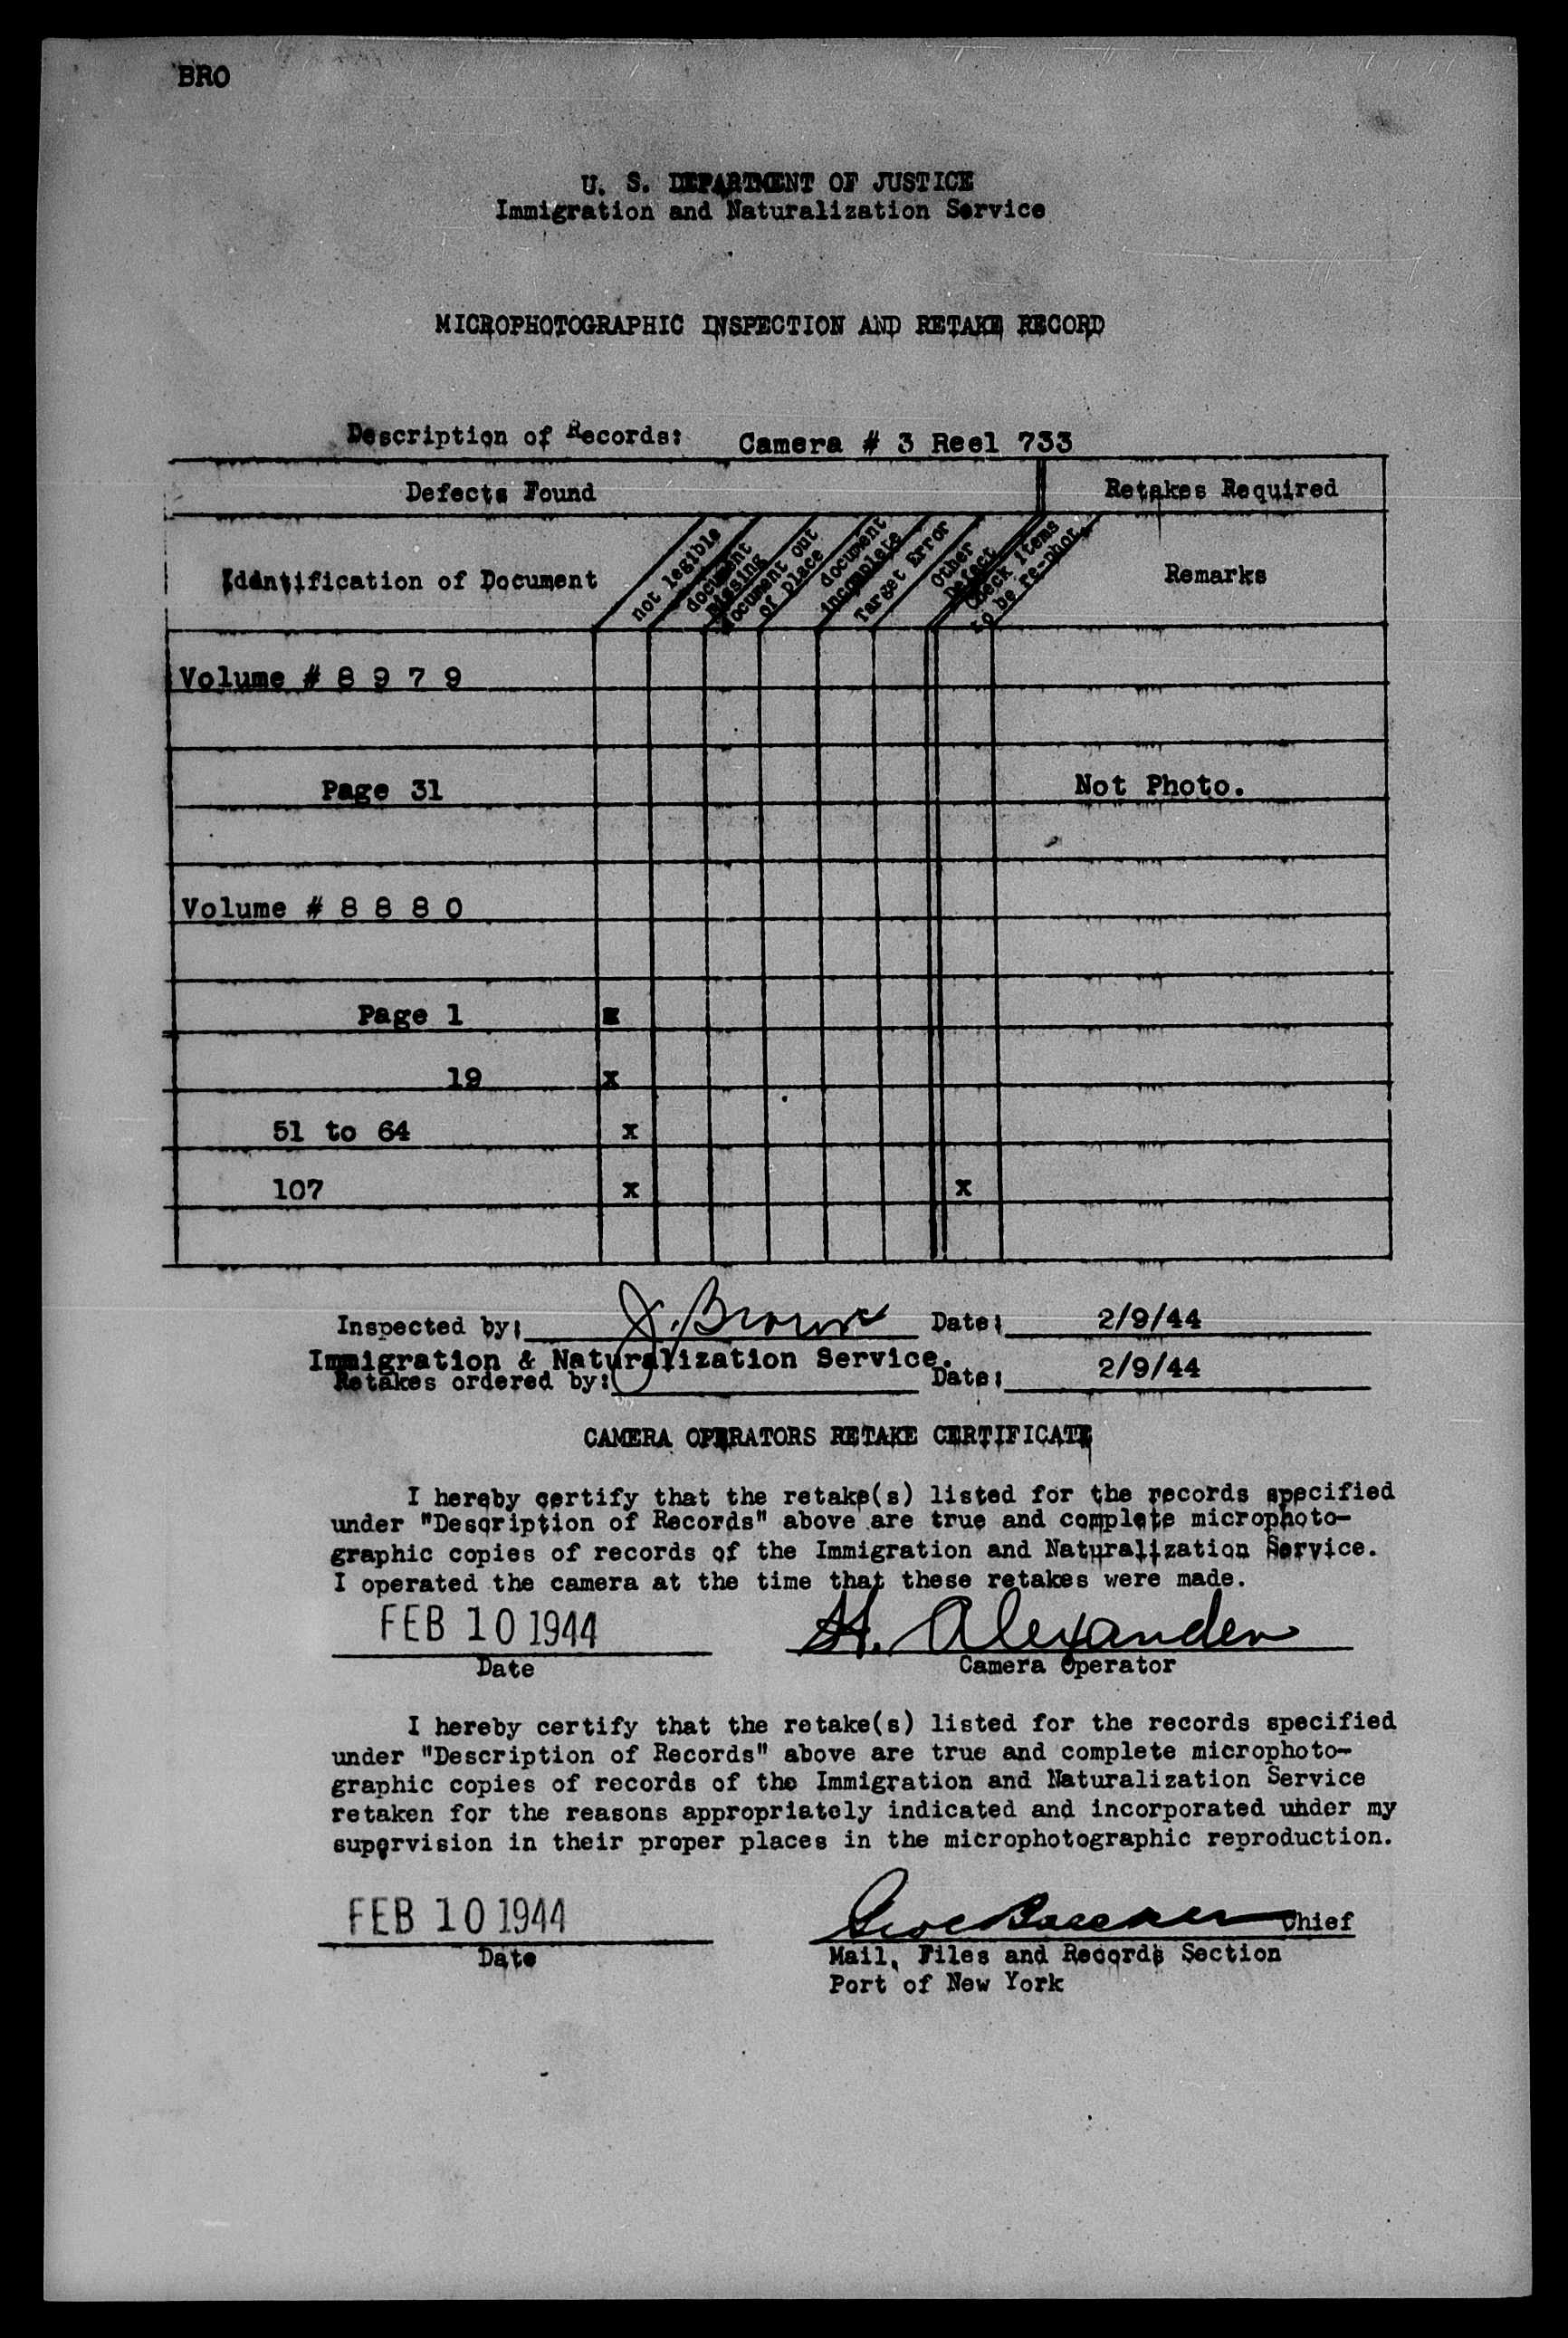 BRO
U. S. DEPARTMENT OF JUSTICE
Immigration and Naturalization Service
MICROPHOTOGRAPHIC INSPECTION AND RETAKE RECORD
Description of Records: Camera # 3 Reel 733
Defects Found Retakes Required
Identification of Document not legible document missing document out of place document incomplete Target Error Other Defect Check Items to be re-phot. Remarks
Volume # 8 9 7 9
Page 31 Not Photo.
Volume # 8 8 8 0
Page 1 x
19 x
51 to 64 x
107 x x
Inspected by: J. Brown Date: 2/9/44
Immigration & Naturalization Service.
Retakes ordered by: Date: 2/9/44
CAMERA OPERATORS RETAKE CERTIFICATE
I hereby certify that the retake(s) listed for the records specified
under "Description of Records" above are true and complete microphoto-
graphic copies of records of the Immigration and Naturalization Service.
I operated the camera at the time that these retakes were made.
FEB 10 1944 H. Alexander
Date Camera Operator
I hereby certify that the retake(s) listed for the records specified
under "Description of Records" above are true and complete microphoto-
graphic copies of records of the Immigration and Naturalization Service
retaken for the reasons appropriately indicated and incorporated under my
supervision in their proper places in the microphotographic reproduction.
FEB 10 1944 Chief
Date Mail, Files and Records Section
Port of New York